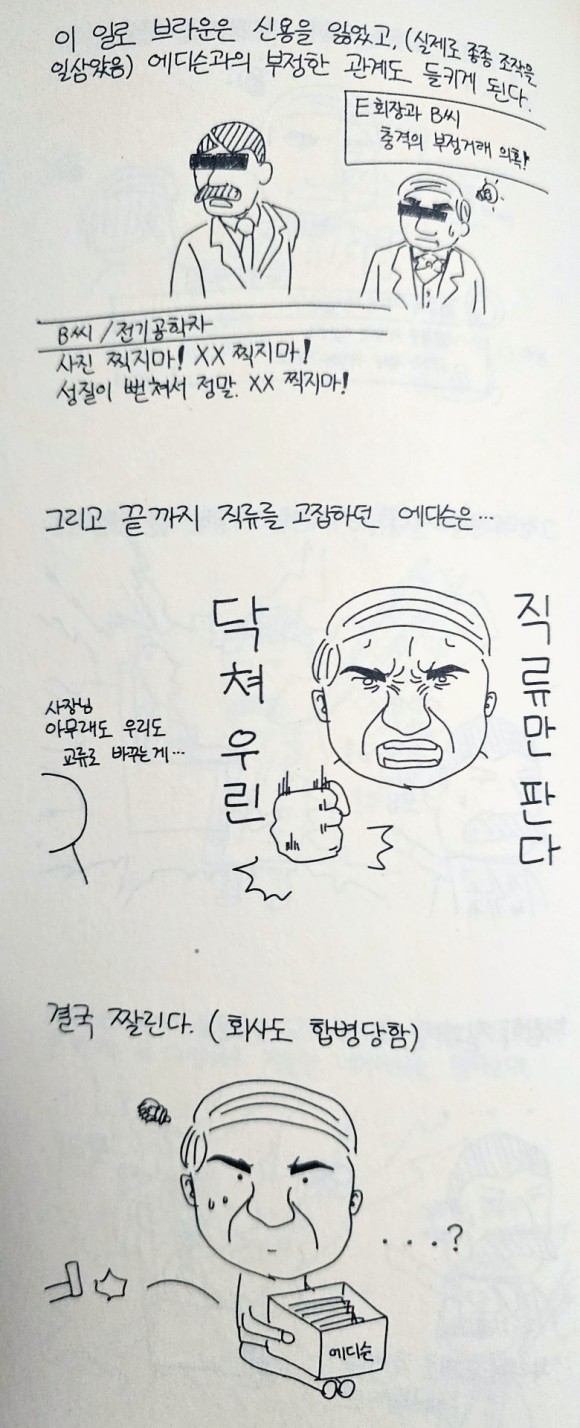 이 일로 브라운은 신용을 잃었고, (실제로 종종 조작을
일삼았음) 에디슨과의 부정한 관계도 들키게 된다.
E회장과 B씨
충격의 부정거래 의혹!
B씨 / 전기공학자
사진 찍지마! XX 찍지마!
성질이 뻗쳐서 정말. XX 찍지마!
그리고 끝까지 직류를 고집하던 에디슨은...
닥쳐 우린
직류만 판다
사장님
아무래도 우리도
교류로 바꾸는게...
결국 짤린다. (회사도 합병당함)
...?
에디슨